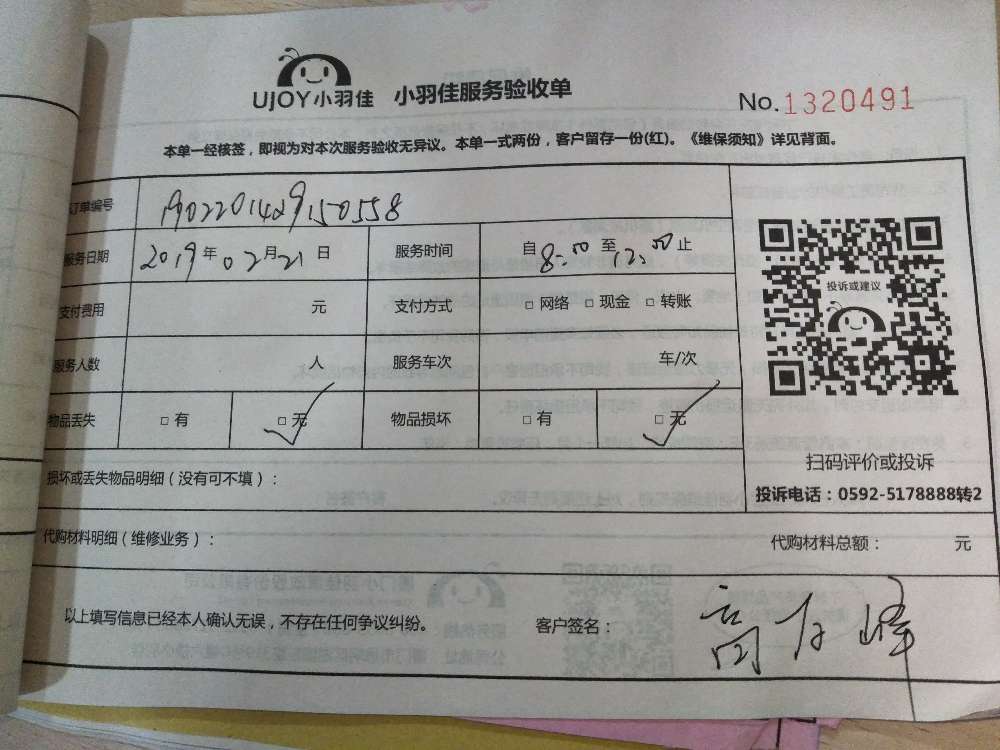 UJOY小羽佳 小羽佳服务验收单
No.1320491
本单一经核签，即视为对本次服务验收无异议。本单一式两份，客户留存一份(红)。《维保须知》详见背面。
订单编号 1902201429150558
服务日期 2019年02月21日 服务时间 自8:00至12:00止
支付费用 元 支付方式 □网络 □现金 □转账
服务人数 人 服务车次 车/次
物品丢失 □有 □无 物品损坏 □有 □无
投诉或建议
扫码评价或投诉
投诉电话：0592-5178888转2
损坏或丢失物品明细（没有可不填）：
代购材料明细（维修业务）： 代购材料总额： 元
以上填写信息已经本人确认无误，不存在任何争议纠纷。 客户签名：